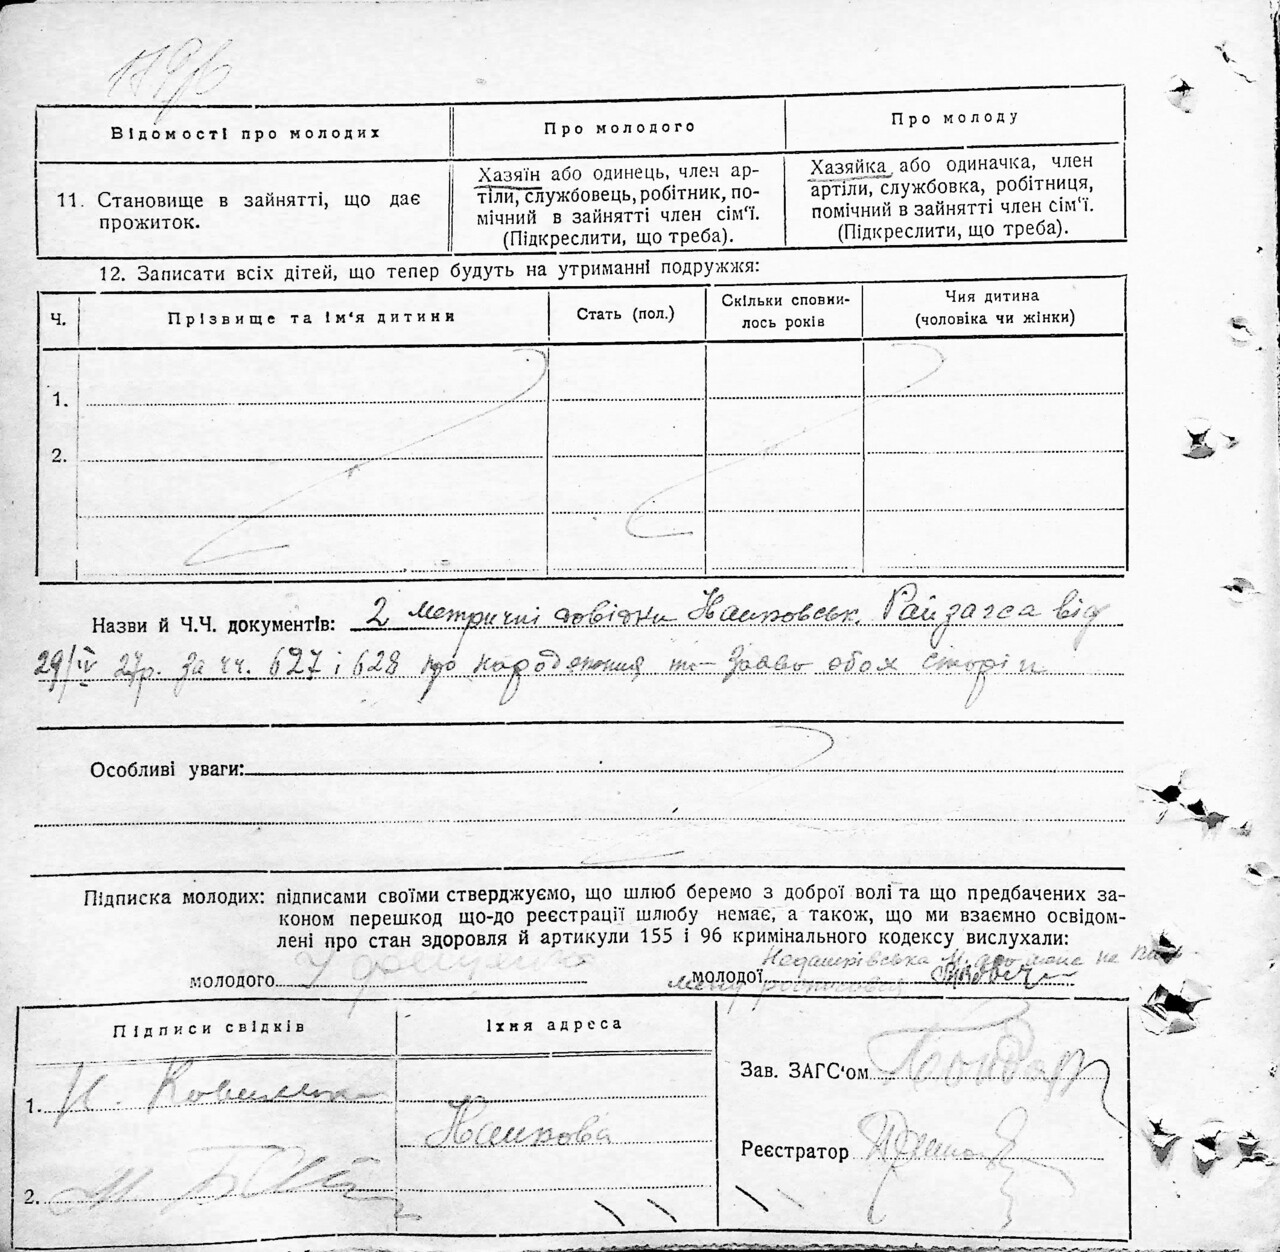 Відомості про молодих
Про молодого
Про молоду
11. Становище в зайнятті, що дає
прожиток.
Хазяїн або одинець, член ар-
тіли, службовець, робітник, по-
мічний в зайнятті член сім'ї.
(Підкреслити, що треба).
Хазяйка або одиначка, член
артіли, службовка, робітниця,
помічний в зайнятті член сім'ї.
(Підкреслити, що треба).
12. Записати всіх дітей, що тепер будуть на утриманні подружжя:
Ч.
Прізвище та ім'я дитини
Стать (пол.)
Скільки сповни-
лось років
Чия дитина
(чоловіка чи жінки)
1.
2.
Назви й Ч.Ч. документів: 2 метричні довідки Райзагса від
29/IV 27р. за чч. 627 і 628 про народження та заява обох сторін
Особливі уваги:
Підписка молодих: підписами своїми стверджуємо, що шлюб беремо з доброї волі та що предбачених за-
коном перешкод що-до реєстрації шлюбу немає, а також, що ми взаємно освідом-
лені про стан здоровля й артикули 155 і 96 кримінального кодексу вислухали:
молодого
молодої
Підписи свідків
Їхня адреса
1.
2.
Зав. ЗАГС'ом
Реєстратор